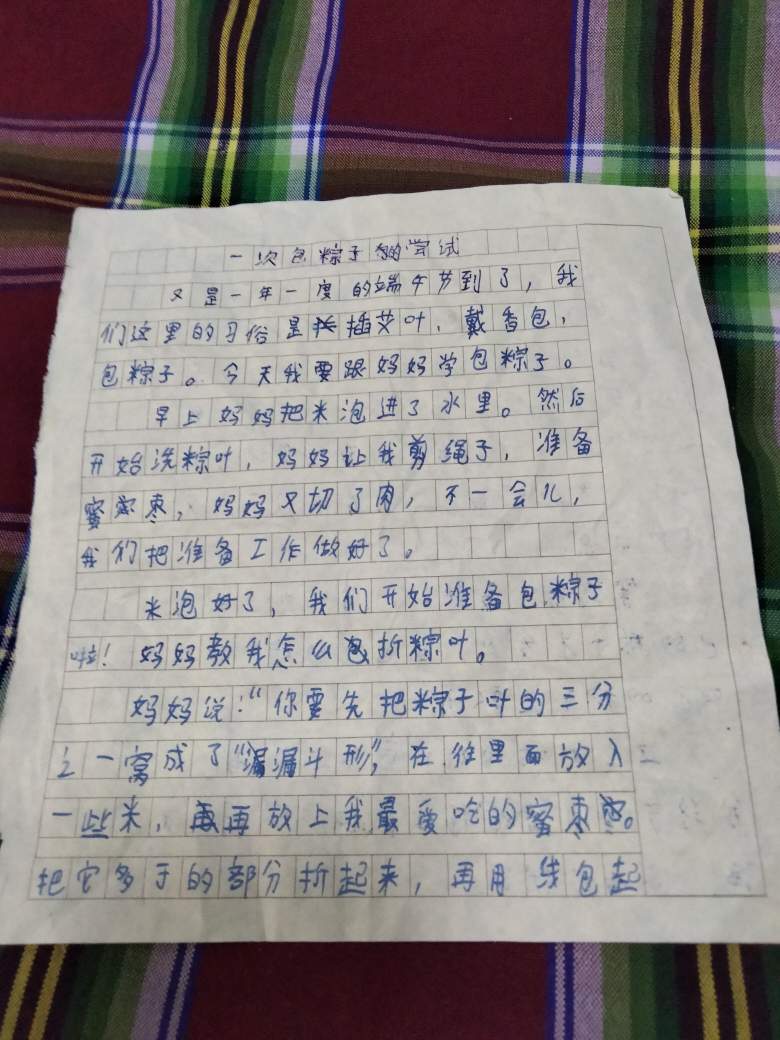 一次包粽子的尝试
又是一年一度的端午节到了，我
们这里的习俗是插艾叶，戴香包，
包粽子。今天我要跟妈妈学包粽子。
早上妈妈把米泡进了水里。然后
开始洗粽叶，妈妈让我剪绳子，准备
蜜枣，妈妈又切了肉，不一会儿，
我们把准备工作做好了。
米泡好了，我们开始准备包粽子
啦！妈妈教我怎么折粽叶。
妈妈说：“你要先把粽子叶的三分
之一窝成了“漏漏斗形”，在往里面放入
一些米，再再放上我最爱吃的蜜枣。
把它多于的部分折起来，再用线包起